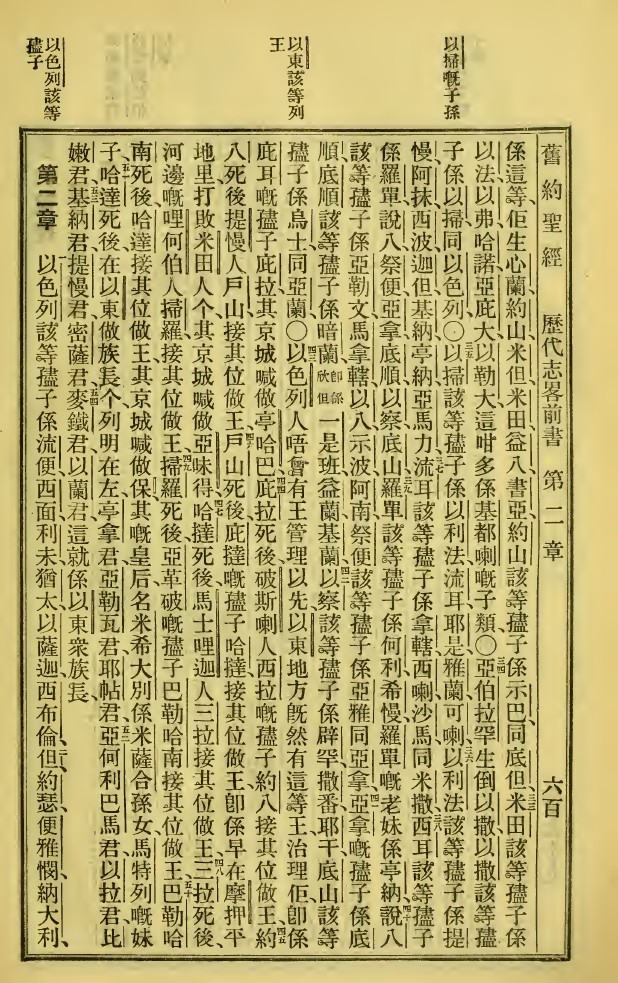 以掃嘅子孫
以東該等列
王
以色列該等
孻子
舊約聖經 歷代志畧前書 第二章 六百
係這等佢生心蘭約山米但米田益八書亞約山該等孻子係示巴同底但三三米田該等孻子係
以法以弗哈諾亞庇大以勒大這咁多係基都喇嘅子類〇三四亞伯拉罕生倒以撒以撒該等孻
子係以掃同以色列〇三五以掃該等孻子係以利法流耳耶是雅蘭可喇三六以利法該等孻子係提
慢阿抹西波迦但基納亭納亞馬力三七流耳該等孻子係拿轄西喇沙馬同米撒三八西耳該等孻子
係羅單說八祭便亞拿底順以察底山三九羅單該等孻子係何利希慢羅單嘅老妹係亭納四十說八
該等孻子係亞勒文馬拿轄以八示波阿南祭便該等孻子係亞雅同亞拿四一亞拿嘅孻子係底
順底順該等孻子係暗蘭即係欣但一是班益蘭基蘭四二以察該等孻子係辟罕撒番耶干底山該等
孻子係烏士同亞蘭〇四三以色列人唔曾有王管理以先以東地方旣然有這等王治理佢卽係
庇耳嘅孻子庇拉其京城喊做亭哈巴四四庇拉死後破斯喇人西拉嘅孻子約八接其位做王四五約
八死後提慢人戶山接其位做王四六戶山死後庇撻嘅孻子哈撻接其位做王卽係早在摩押平
地里打敗米田人个其京城喊做亞味得四七哈撻死後馬士哩迦人三拉接其位做王四八三拉死後
河邊嘅哩何伯人掃羅接其位做王四九掃羅死後亞革破嘅孻子巴勒哈南接其位做王五十巴勒哈
南死後哈達接其位做王其京城喊做保其嘅皇后名米希大別係米薩合孫女馬特列嘅妹
子五一哈達死後在以東做族長个列明在左亭拿君亞勒瓦君耶帖君五二亞何利巴馬君以拉君比
嫩君五三基納君提慢君密薩君五四麥鐵君以蘭君這就係以東衆族長
第二章 一以色列該等孻子係流便西面利未猶太以薩迦西布倫二但約瑟便雅憫納大利